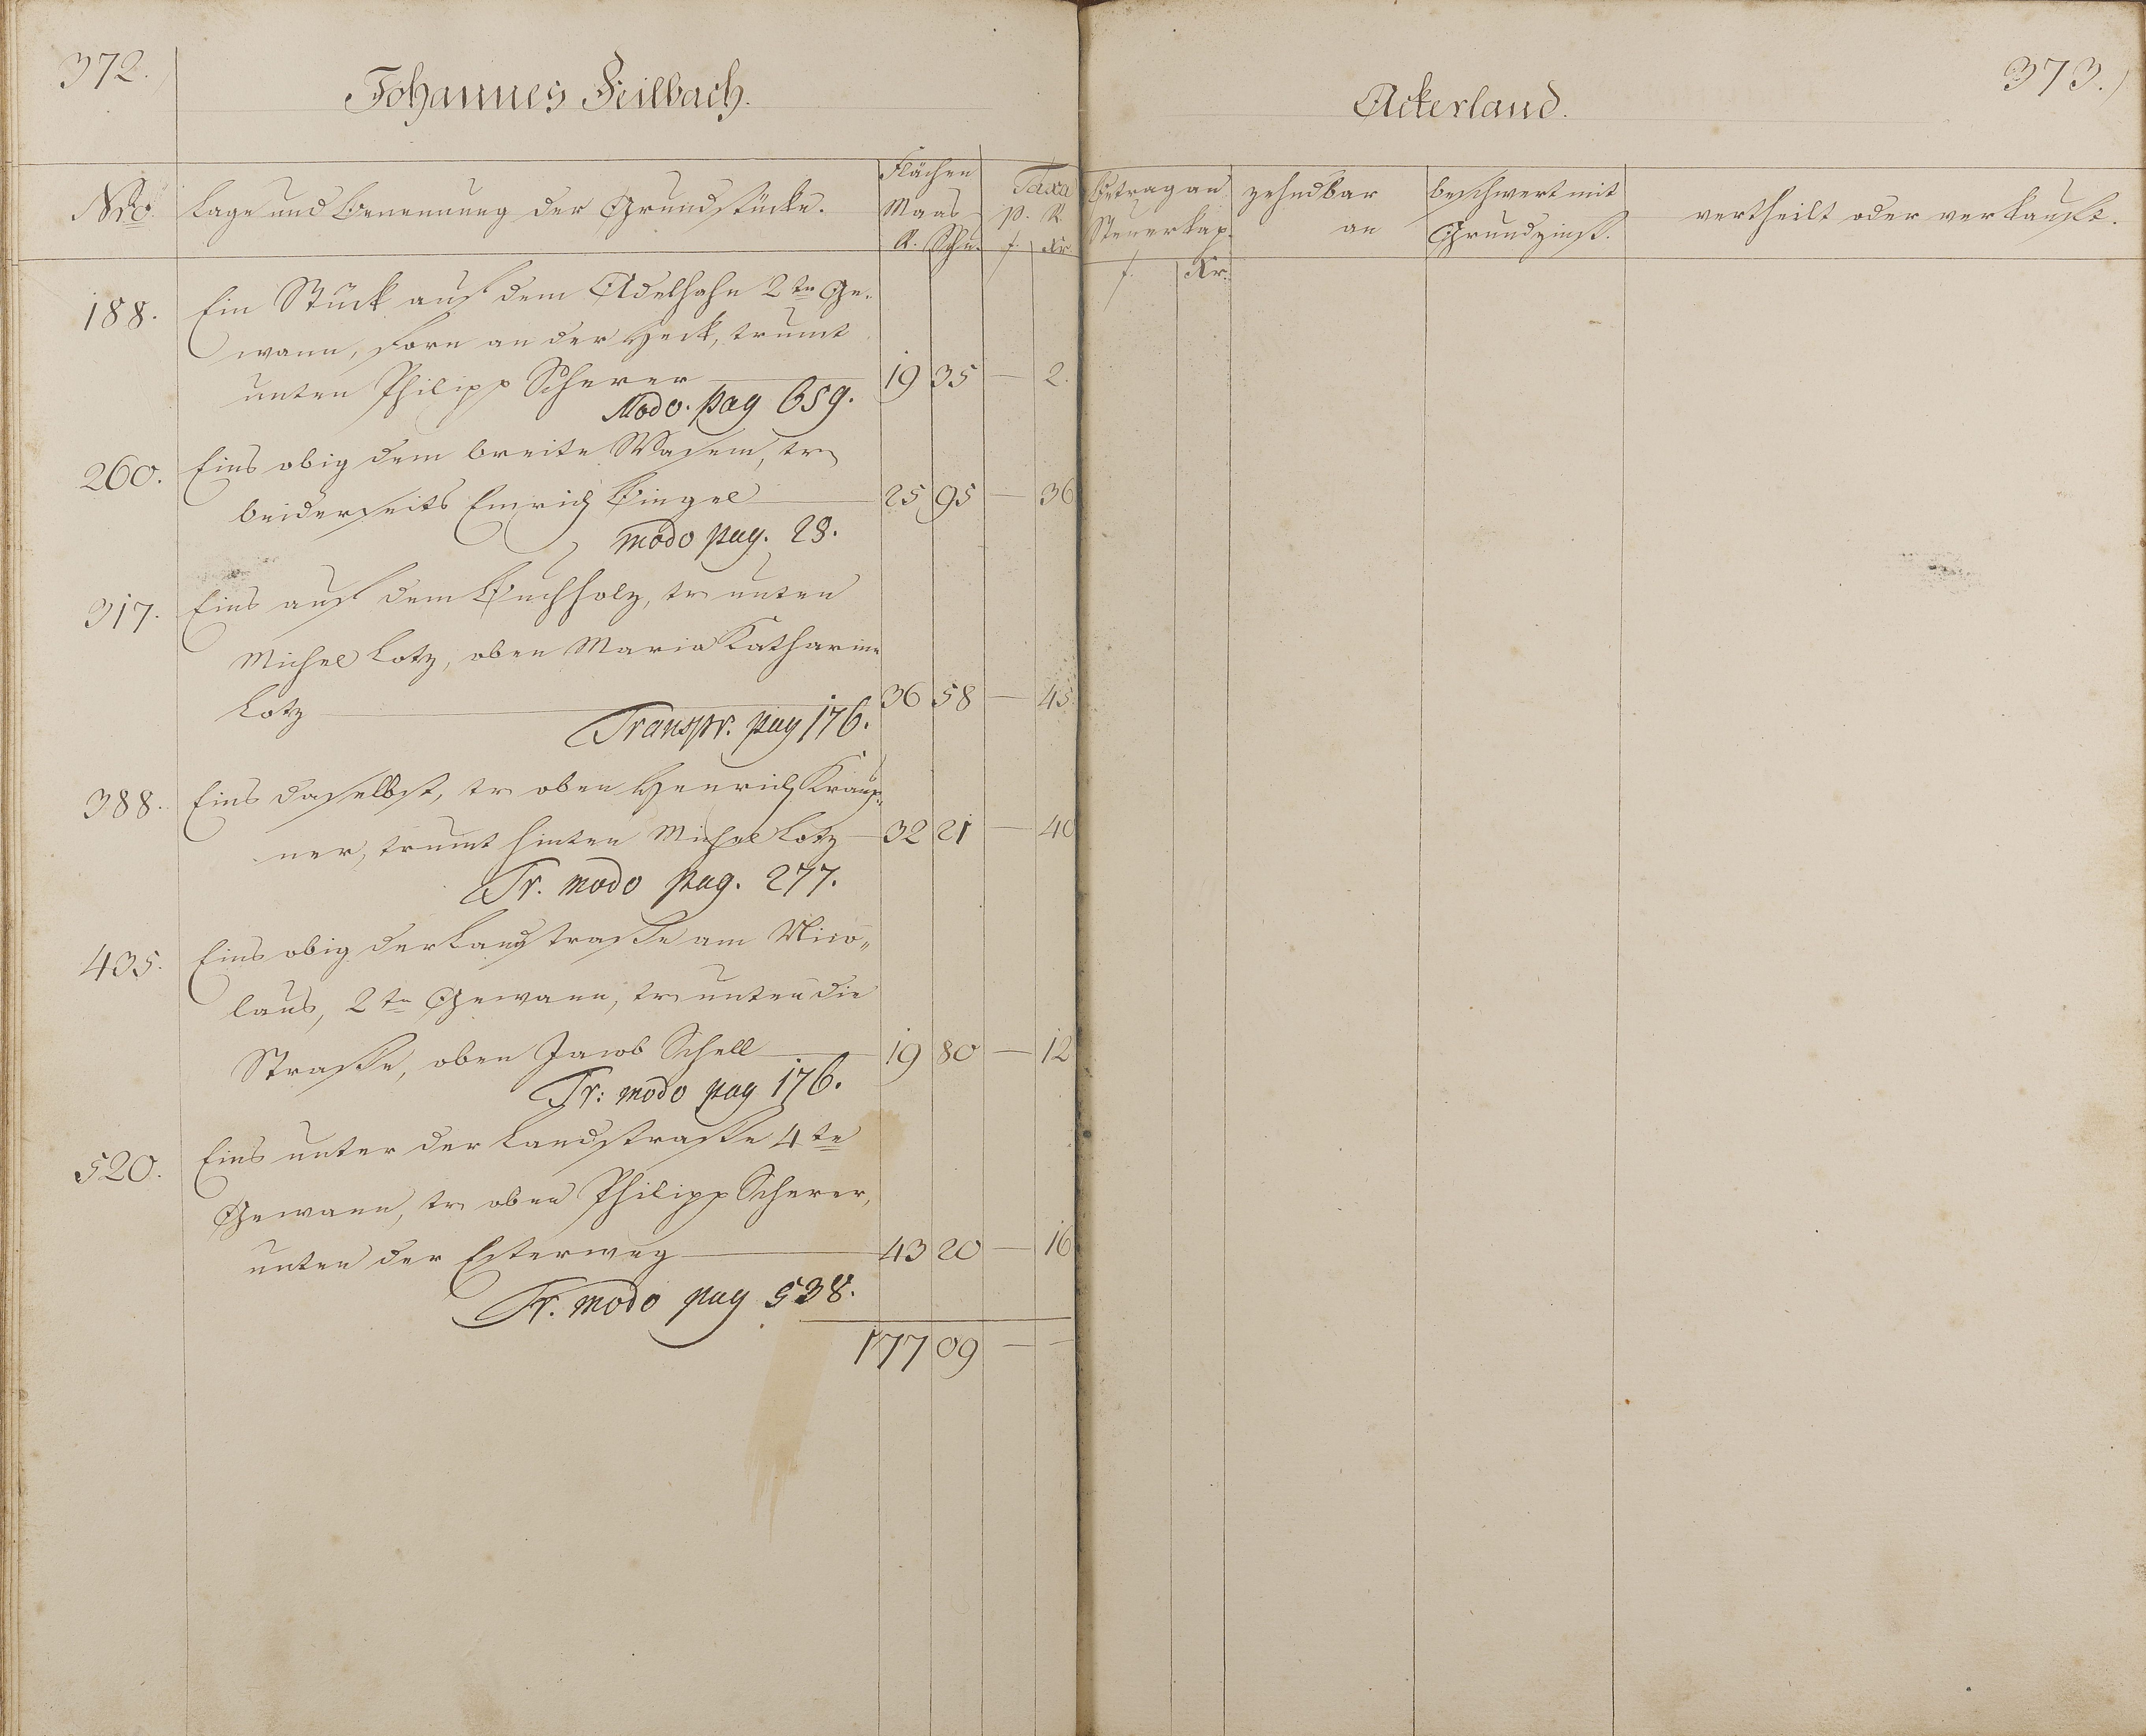 372.
Johannes Feilbach.
Nro.
Lage und Benennung der Grundstücke.
Flächen
Maas
R. Schu.
Taxa
p. R.
f. Kr.
188. Ein Stück auf dem Adelhahn 2te Ge-
wann, forn an der Heck, trumt
unten Philipp Scherer 19 35 — 2.
Modo. pag 659.
260. Eins obig dem breite Wasem, tr
beiderseits Emrich Bingel 25 95 — 36
modo pag. 28.
317. Eins auf dem Buchholz, tr unten
Michel Lotz, oben Maria Katharine
Lotz 36 58 — 45
Transpr. pag 176.
388. Eins daselbst, tr oben Henrich
ner, trumt hinten Michel Lotz 32 21 — 40
Tr. modo pag. 277.
435. Eins obig der Landstrasse am Nico„
laus, 2te Gewann, tr unten die
Strasse, oben Jacob Schell 19 80 — 12
Tr: modo pag 176.
520. Eins unter der Landstrasse 4te
Gewann, tr oben Philipp Scherer,
unten der Esterweg 43 20 — 16
Tr. modo pag 538.
177 09 — —
373.
Ackerland.
Betrag an
Steuerkap.
f. Kr.
zehndbar
an
beschwert mit
Grundzinß.
vertheilt oder verkauft.